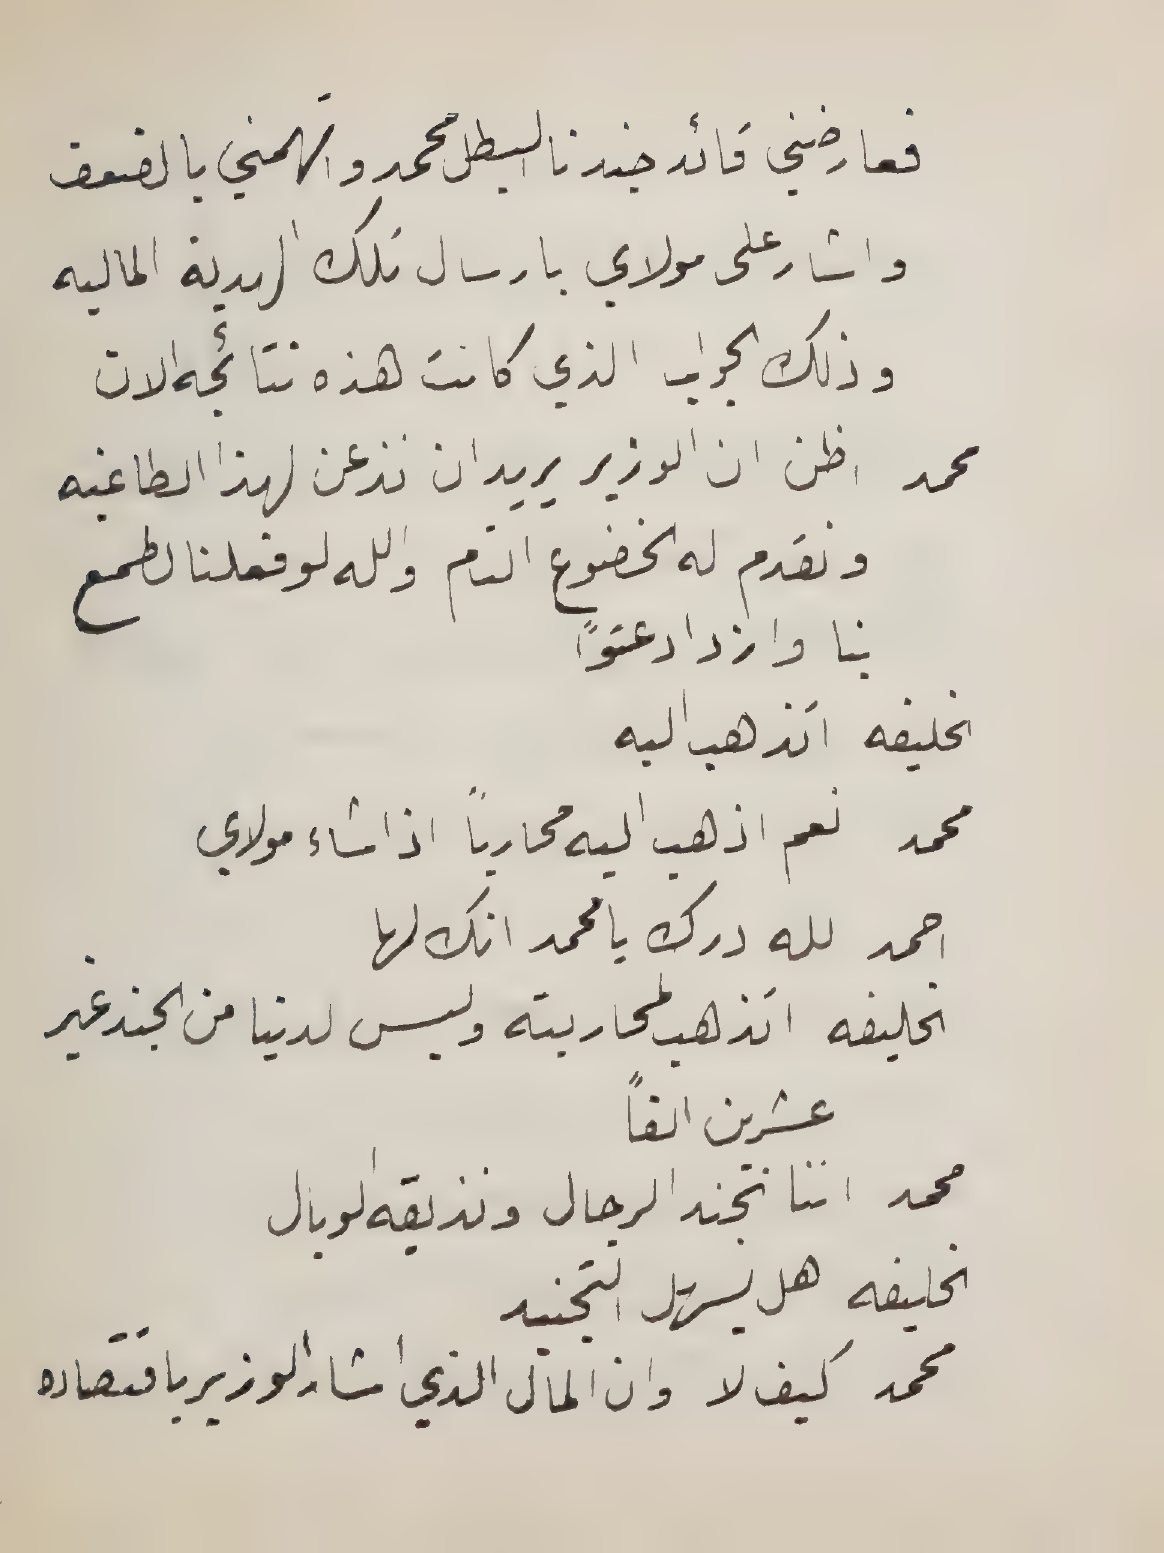 فعارضني قائد جندنا البطل محمد واتهمني بالضعف
واشار على مولاي بارسال تلك الهدية الماليه
وذلك الجواب الذي كانت هذه نتائجه الان
محمد اظن ان الوزير يريد ان نذعن لهذا الطاغيه
ونقدم له الخضوع التام والله لو فعلنا لطمع
بنا وازداد عتوًا
الخليفه اتذهب اليه
محمد نعم اذهب اليه محاربًا اذا شاء مولاي
احمد لله درك يا محمد انك لها
الخليفه اتذهب لمحاربته وليس لدينا من الجند غير
عشرين الفًا
محمد اننا نجند الرجال ونذيقه الوبال
الخليفه هل يسهل التجنيد
محمد كيف لا وان المال الذي اشار الوزير باقتصاده